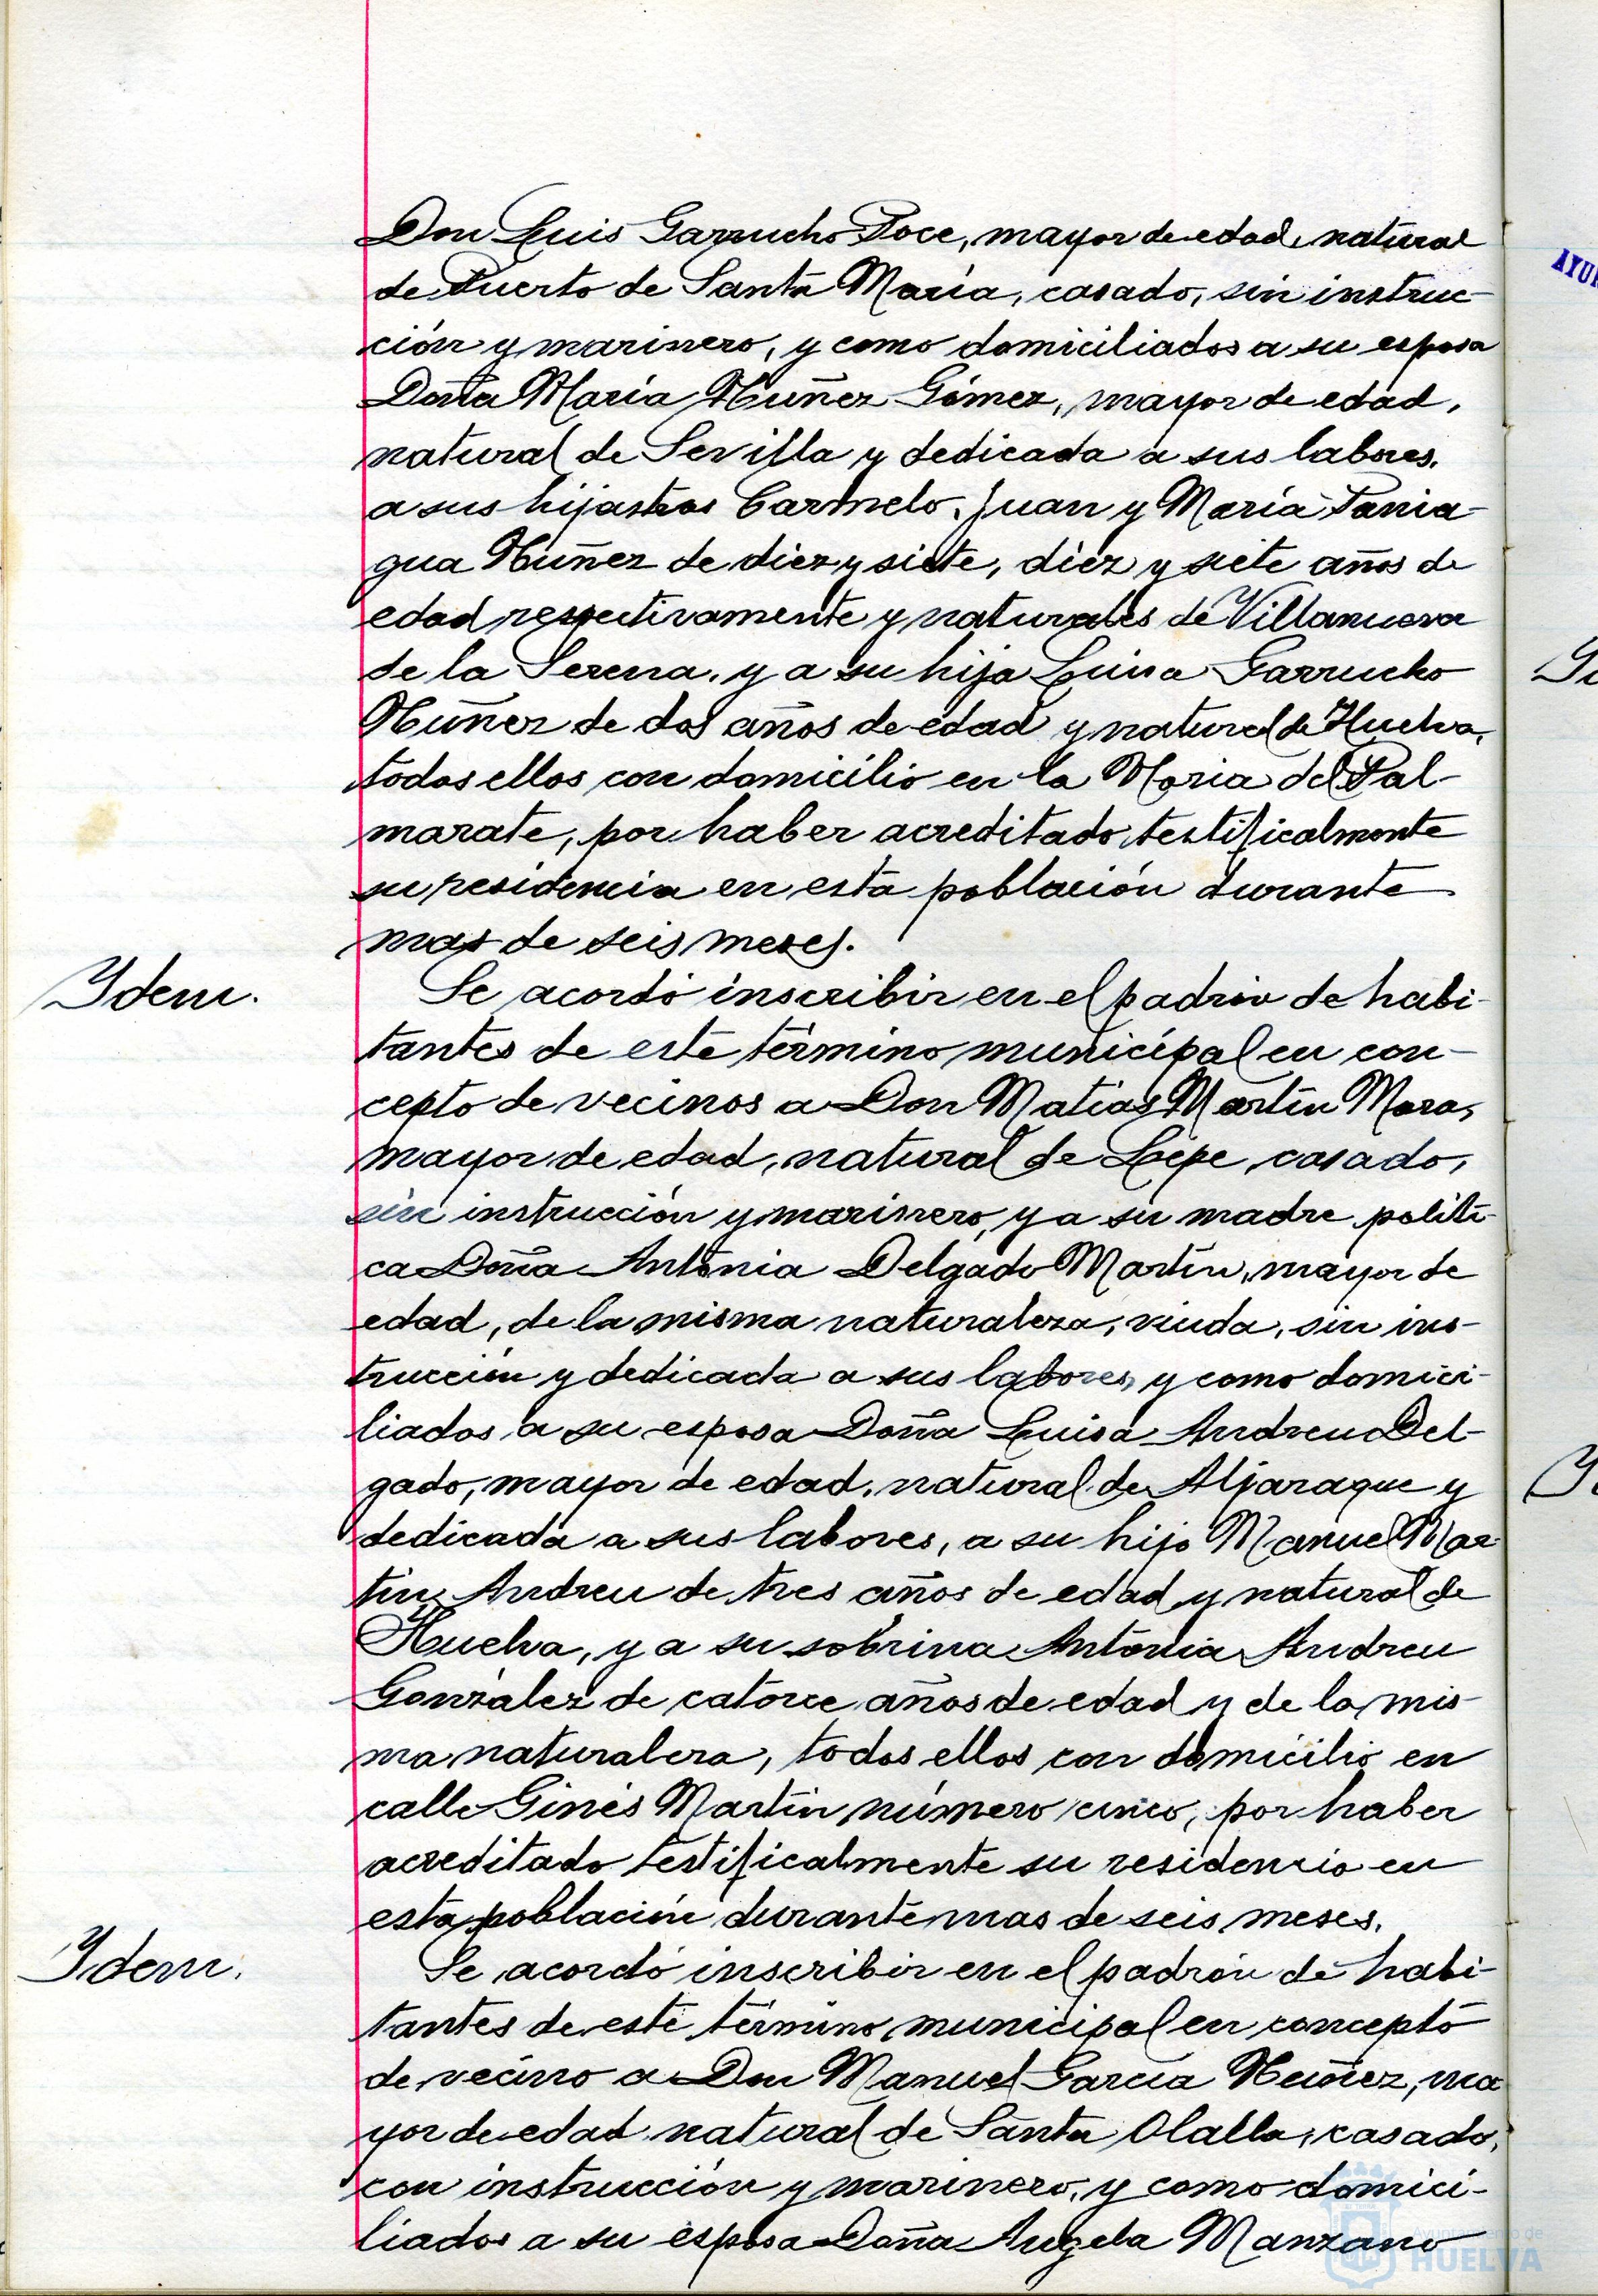 Don Luis Garrucho Poce, mayor de edad, natural
de Puerto de Santa María, casado, sin instruc-
ción y marinero, y como domiciliados a su esposa
Doña María Nuñez Gómez, mayor de edad,
natural de Sevilla y dedicada a sus labores,
a sus hijastros Carmelo, Juan y María Pania-
gua Nuñez de diez y siete, diez y siete años de
edad respectivamente y naturales de Villanueva
de la Serena, y a su hija Luisa Garrucho
Nuñez de dos años de edad y natural de Huelva,
todos ellos con domicilio en la Noria del Pal-
marate, por haber acreditado testificalmente
su residencia en esta población durante
mas de seis meses.
Idem.
Se acordó inscribir en el padrón de habi-
tantes de este término municipal en con-
cepto de vecinos a Don Matias Martín Mora,
mayor de edad, natural de Lepe, casado,
sin instrucción y marinero, y a su madre políti-
ca Doña Antonia Delgado Martín, mayor de
edad, de la misma naturaleza, viuda, sin ins-
trucción y dedicada a sus labores, y como domici-
liados a su esposa Doña Luisa Andreu Del-
gado, mayor de edad, natural de Aljaraque y
dedicada a sus labores, a su hijo Manuel Mar-
tín Andreu de tres años de edad y natural de
Huelva, y a su sobrina Antonia Andreu
González de catorce años de edad y de la mis-
ma naturaleza, todos ellos con domicilio en
calle Ginés Martín número cinco, por haber
acreditado testificalmente su residencia en
esta población durante mas de seis meses.
Idem.
Se acordó inscribir en el padrón de habi-
tantes de este término municipal en concepto
de vecino a Don Manuel García Nuñez, ma
yor de edad natural de Santa Olalla, casado,
con instrucción y marinero, y como domici-
liados a su esposa Doña Angela Manzano
Ayuntamiento de
HUELVA